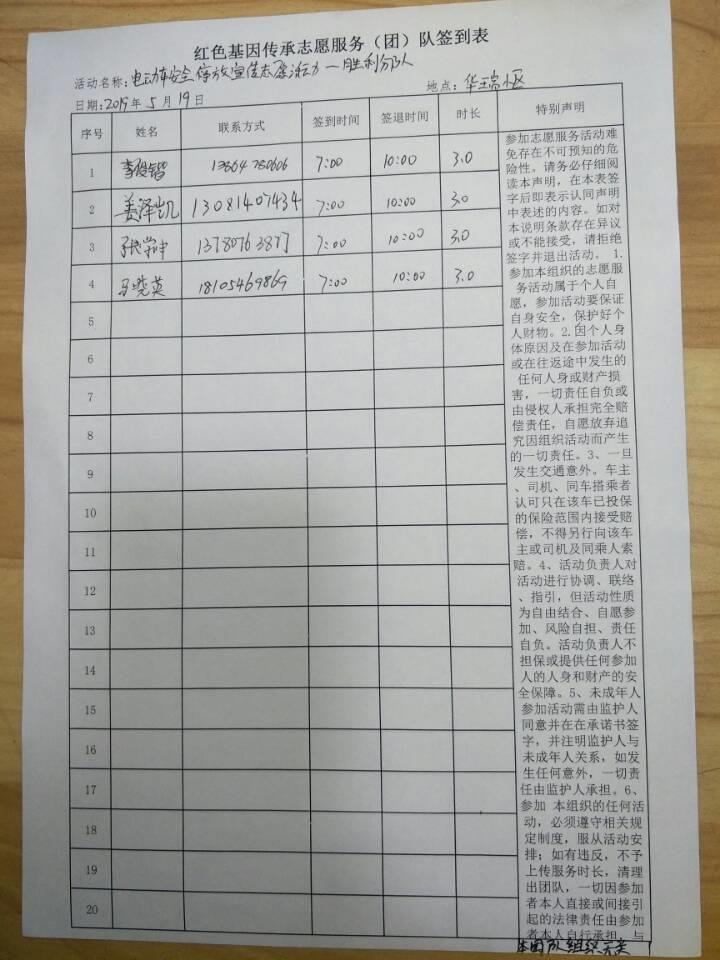 红色基因传承志愿服务（团）队签到表
活动名称：电动车安全停放宣传志愿活动—胜利分队
日期：2019年5月19日 地点：华瑞小区
序号 姓名 联系方式 签到时间 签退时间 时长 特别声明
1 李俊锴 13864780606 7:00 10:00 3.0
2 姜泽凯 13081407434 7:00 10:00 3.0
3 13780763877 7:00 10:00 3.0
4 马晓英 18105469869 7:00 10:00 3.0
5
6
7
8
9
10
11
12
13
14
15
16
17
18
19
20
参加志愿服务活动难
免存在不可预知的危
险性。请务必仔细阅
读本声明，在本表签
字后即表示认同声明
中表述的内容。如对
本说明条款存在异议
或不能接受，请拒绝
签字并退出活动。 1.
参加本组织的志愿服
务活动属于个人自
愿，参加活动要保证
自身安全，保护好个
人财物。2.因个人身
体原因及在参加活动
或在往返途中发生的
任何人身或财产损
害，一切责任自负或
由侵权人承担完全赔
偿责任，自愿放弃追
究因组织活动而产生
的一切责任。3、一旦
发生交通意外。车主
、司机、同车搭乘者
认可只在该车已投保
的保险范围内接受赔
偿，不得另行向该车
主或司机及同乘人索
赔。4、活动负责人对
活动进行协调、联络
、指引，但活动性质
为自由结合、自愿参
加、风险自担、责任
自负。活动负责人不
担保或提供任何参加
人的人身和财产的安
全保障。5、未成年人
参加活动需由监护人
同意并在在承诺书签
字，并注明监护人与
未成年人关系，如发
生任何意外，一切责
任由监护人承担。6、
参加 本组织的任何活
动，必须遵守相关规
定制度，服从活动安
排；如有违反，不予
上传服务时长，清理
出团队，一切因参加
者本人直接或间接引
起的法律责任由参加
者本人自行承担，与
本团队组织无关